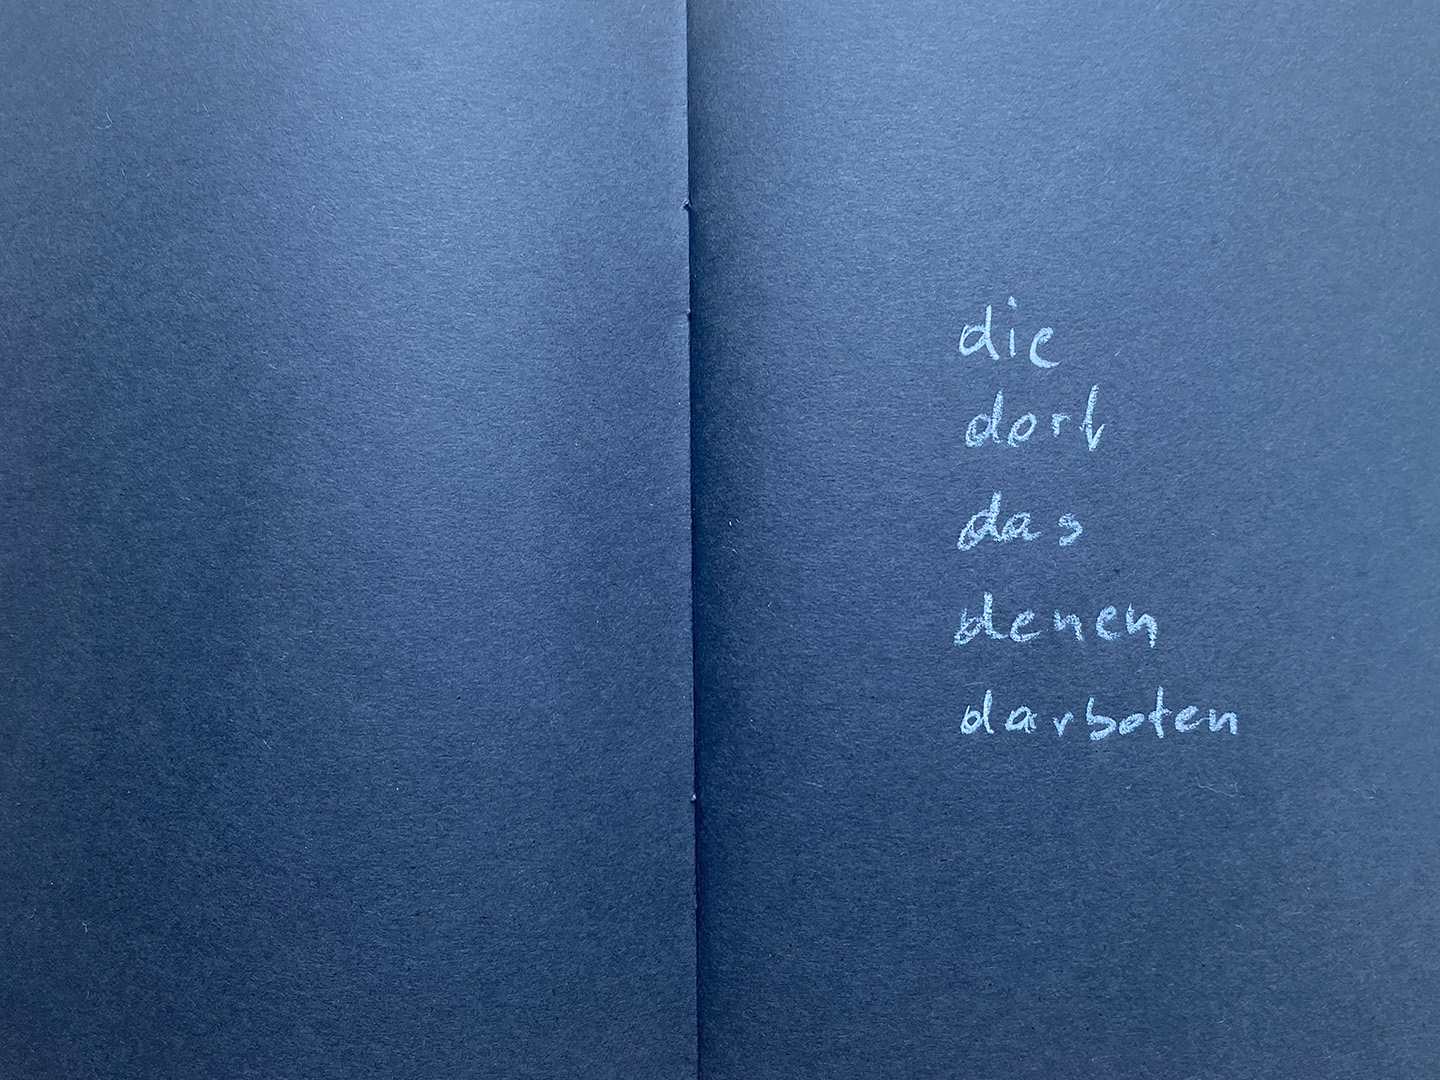 die
dort
das
denen
darboten